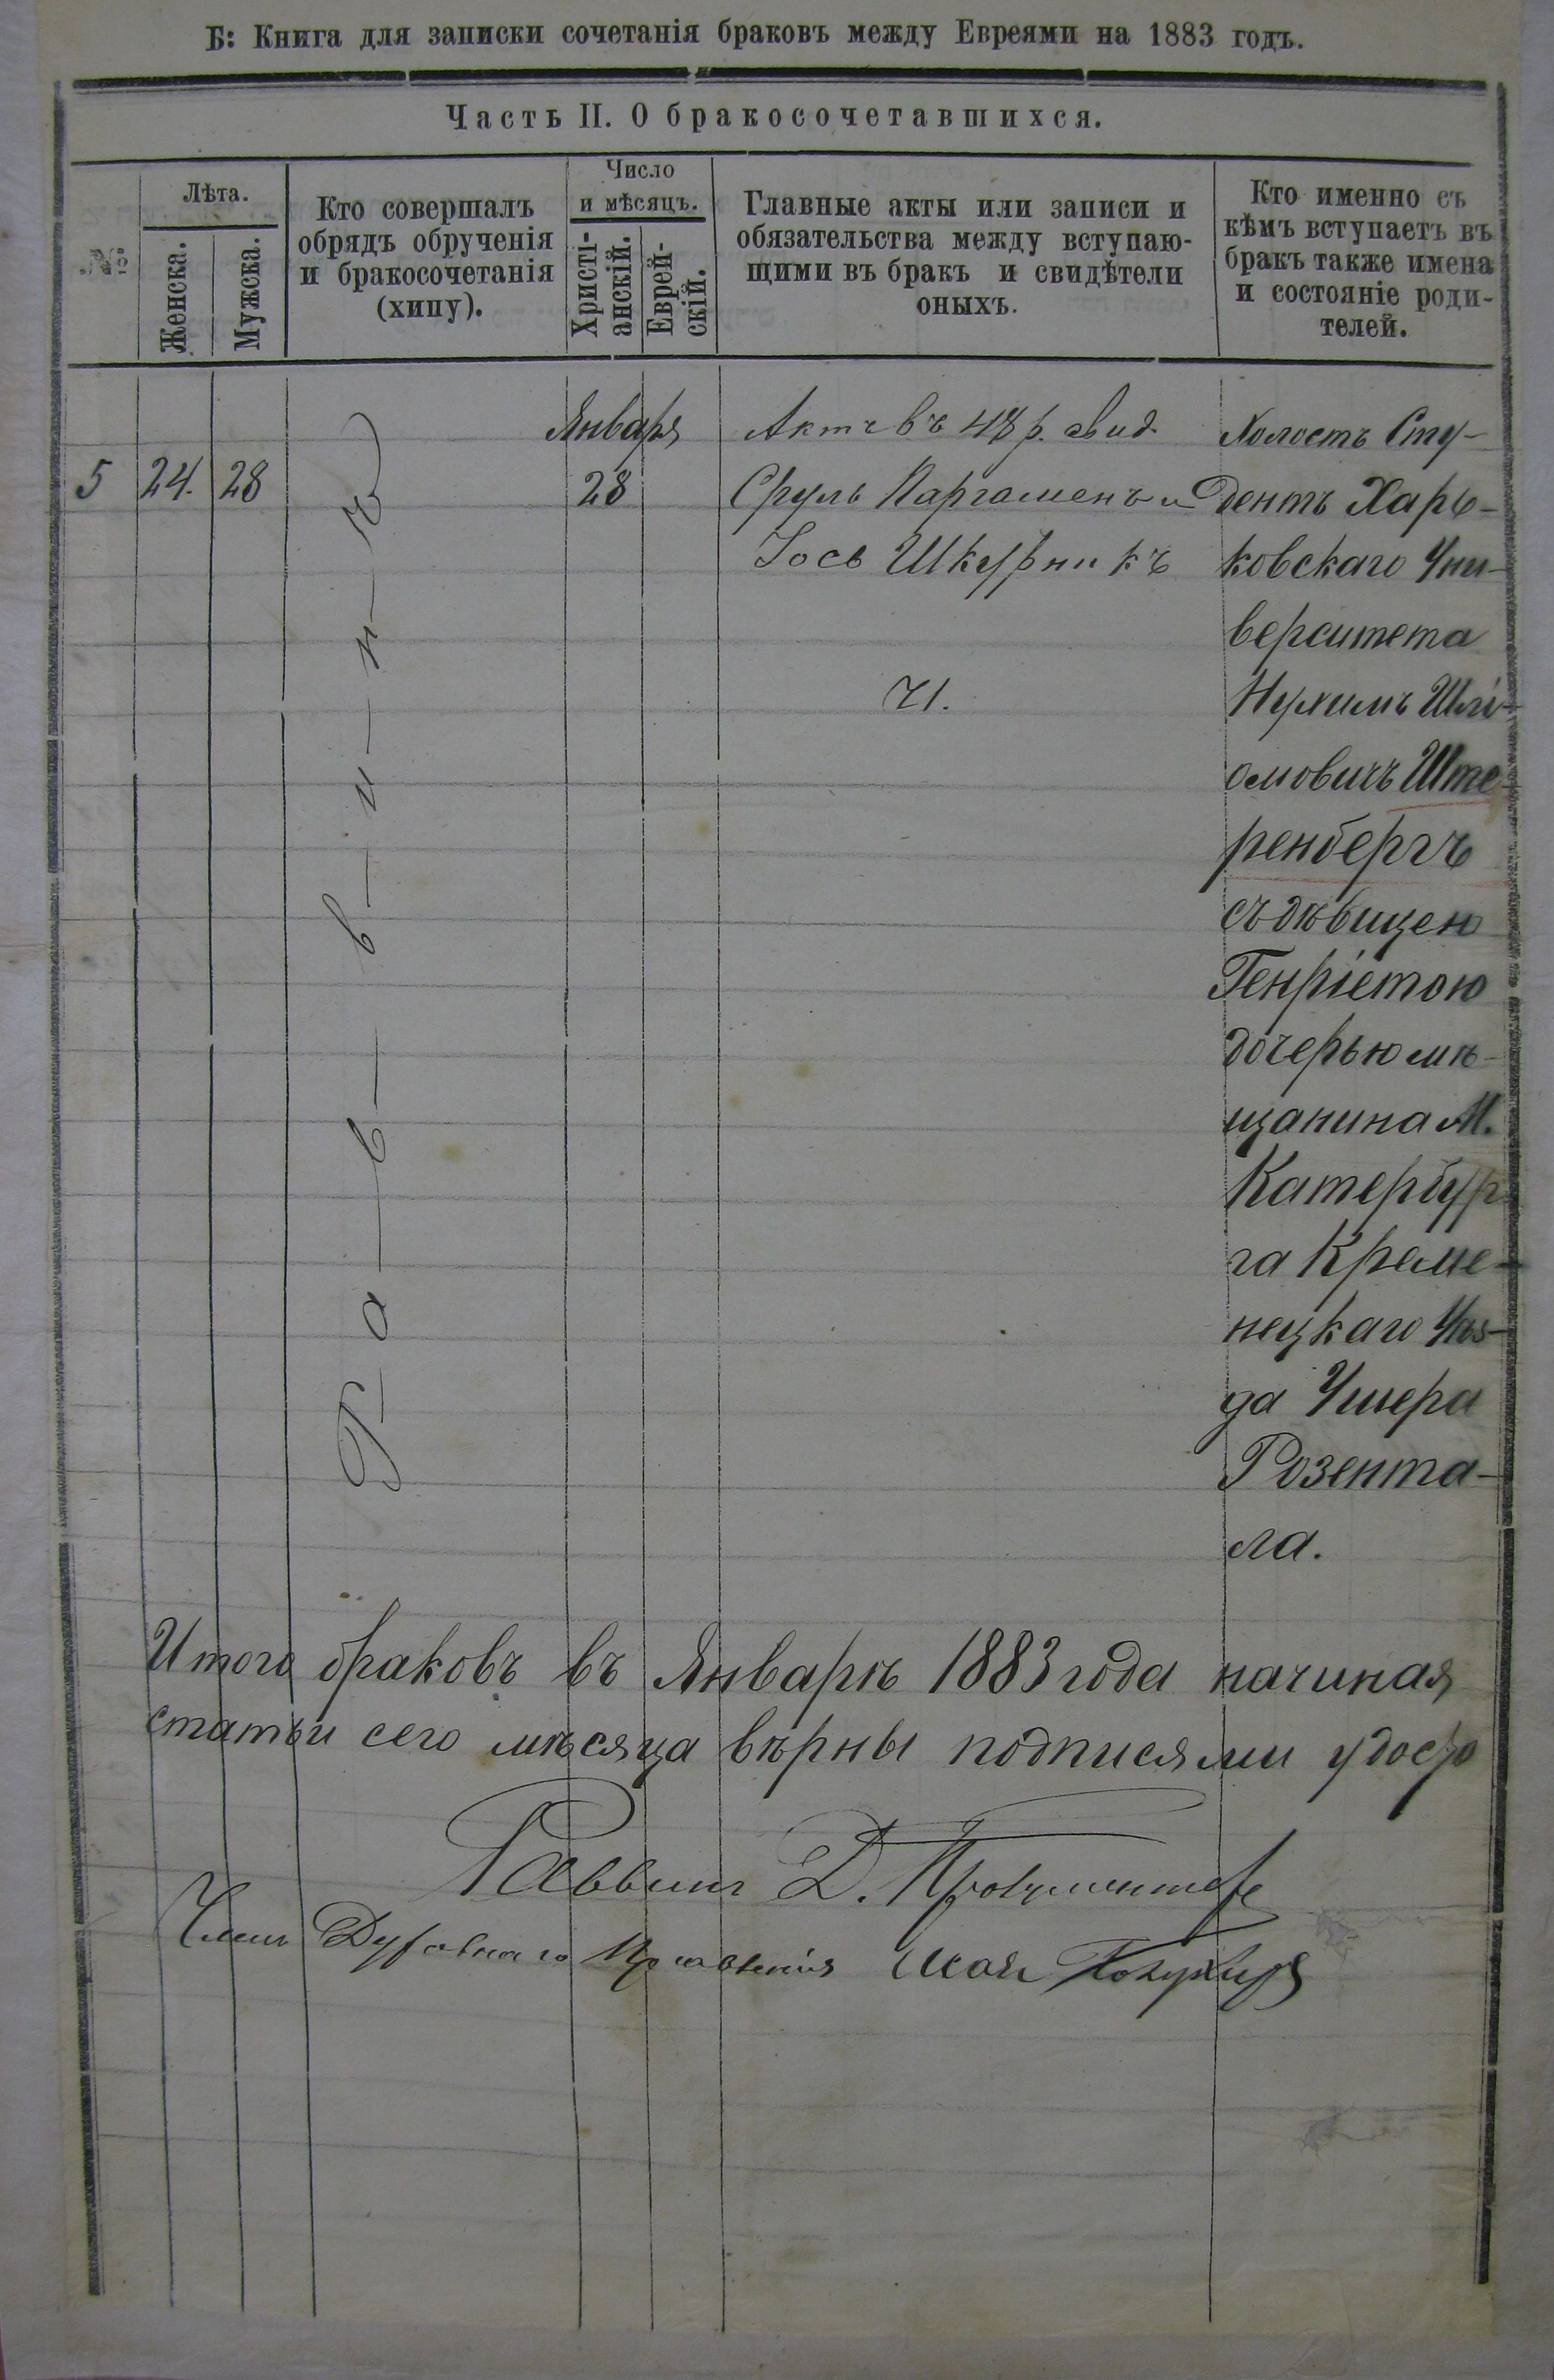 Б: Книга для записки сочетанія браковъ между Евреями на 1883 годъ.
Часть II. О бракосочетавшихся.
№
Лѣта.
Женска.
Мужска.
Кто совершалъ
обрядъ обрученія
и бракосочетанія
(хипу).
Число
и мѣсяцъ.
Христі-
анскій.
Еврей-
скій.
Главные акты или записи и
обязательства между вступаю-
щими въ бракъ и свидѣтели
оныхъ.
Кто именно съ
кѣмъ вступаетъ въ
бракъ также имена
и состояніе роди-
телей.
5
24.
28
Раввинъ
Января
28
Актъ въ 48 р. свид.
Сруль Паргаменъ и
Іось Шкурникъ
Ч1.
Холостъ Сту-
дентъ Харь-
ковскаго Уни-
верситета
Нухимъ Шлі-
омовичъШте-
ренбергъ
съ дѣвицею
Генріетою
дочерью мѣ-
щанина М.
Катербур-
га Креме-
нецкаго Уѣз-
да Ушера
Розента-
ла.
Итого браковъ въ Январѣ 1883 года начиная
статьи сего мѣсяца вѣрны подписями удосто
Раввинъ Д.
Членъ Духовнаго Правленія